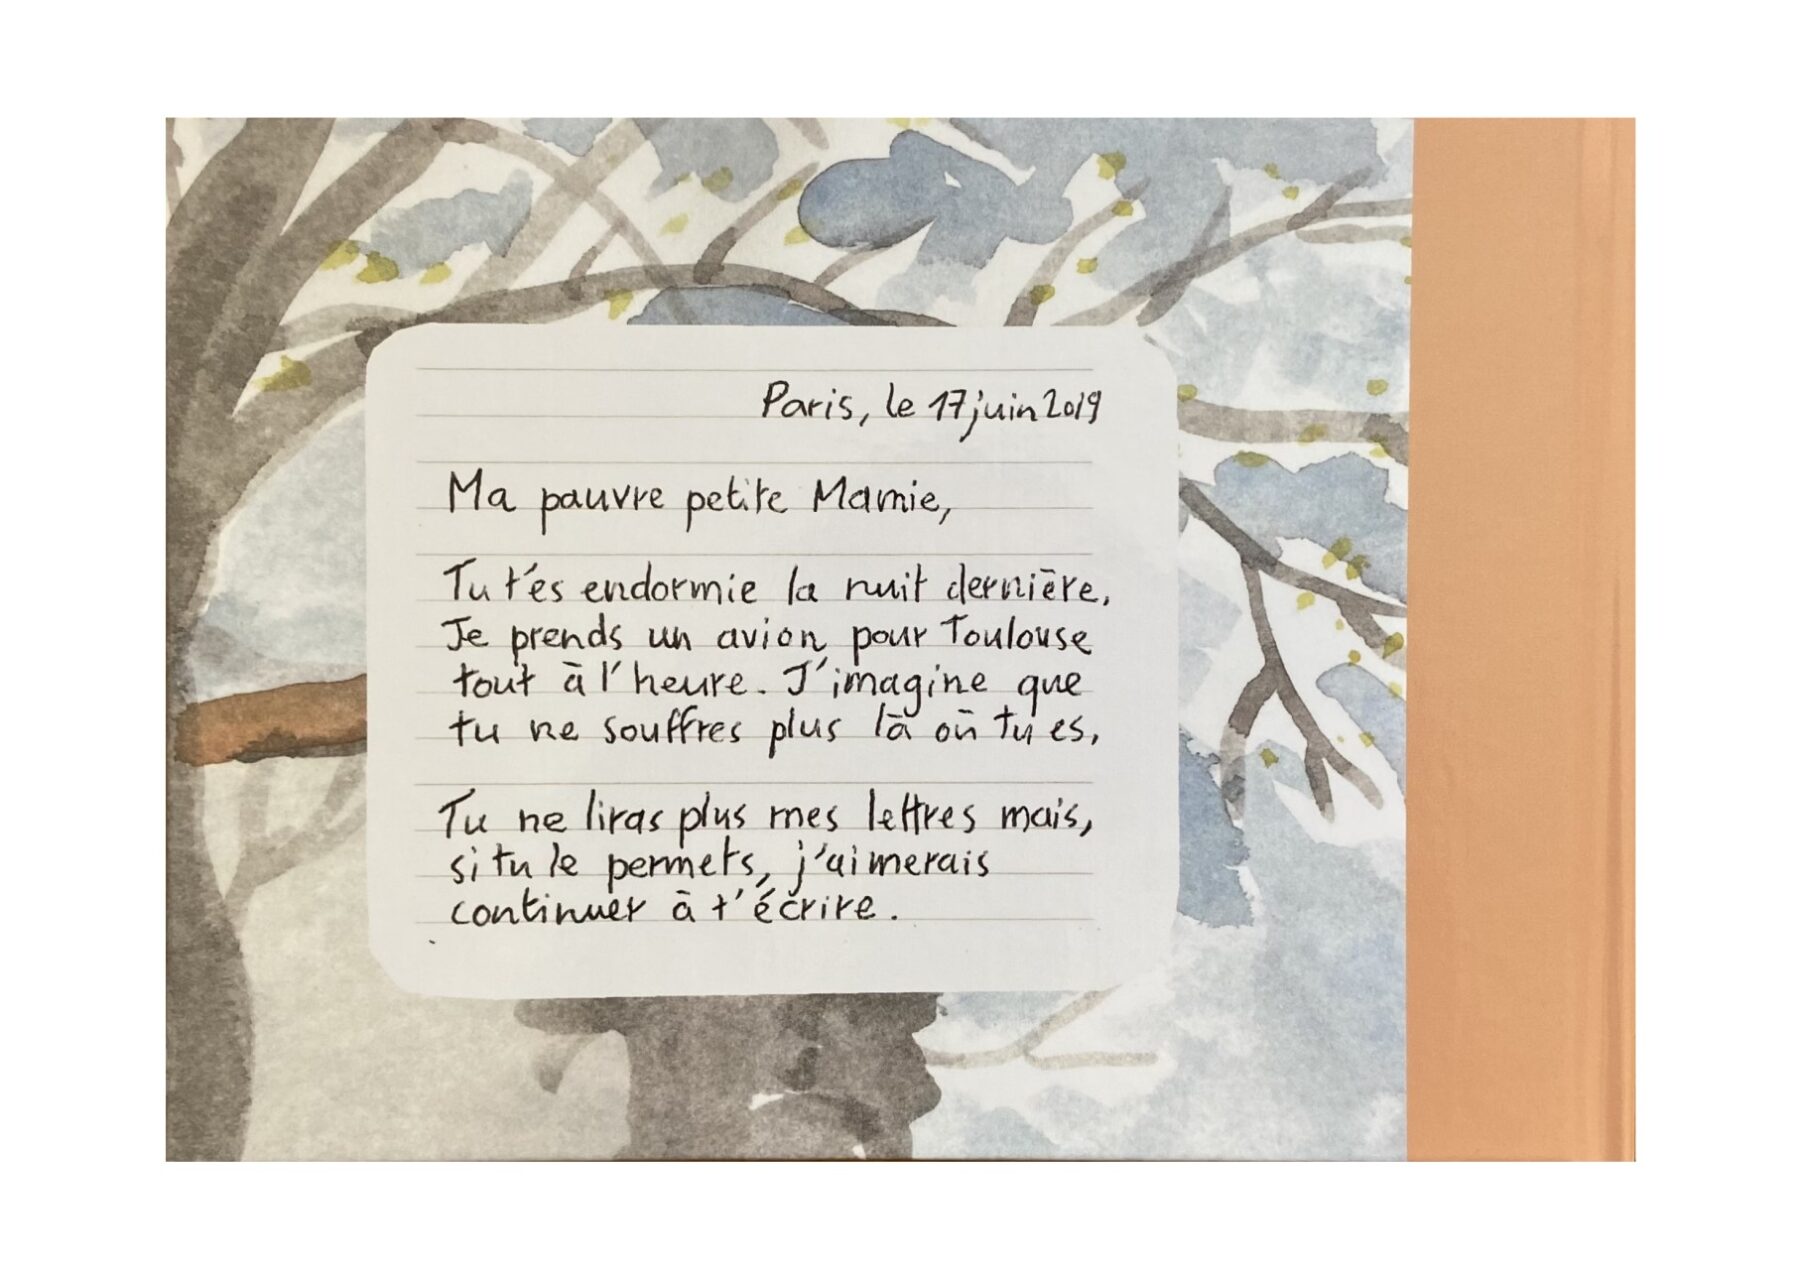 Paris, le 17 juin 2019
Ma pauvre petite Mamie,
Tu t'es endormie la nuit dernière.
Je prends un avion pour Toulouse
tout à l'heure. J'imagine que
tu ne souffres plus là où tu es.
Tu ne liras plus mes lettres mais,
si tu le permets, j'aimerais
continuer à t'écrire.